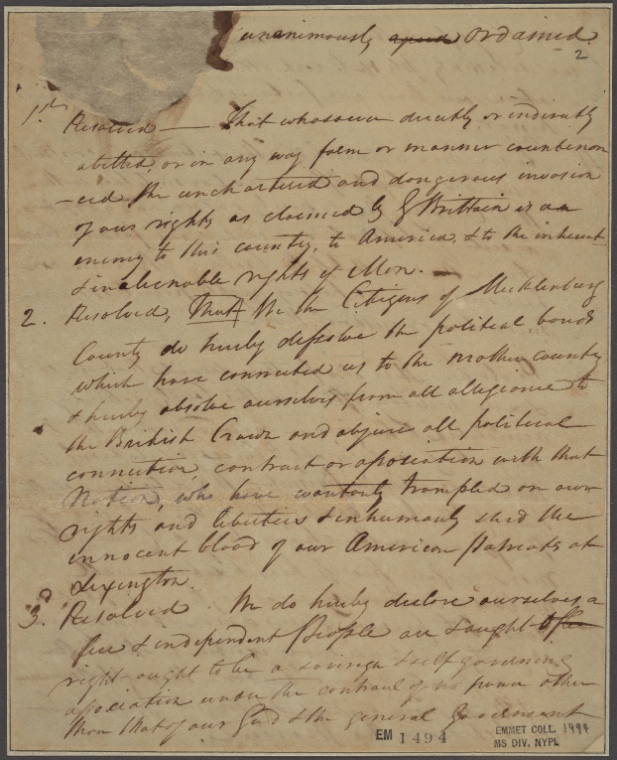 unanimously agreed Ordained.
2
1st
Resolved — That whosoever directly or indirectly
abetted, or in any way form or manner countenan
-ced the unchartered and dangerous invasion
of our rights as claimed by G Brittain is an
enemy to this county, to America, & to the inherent
& inalienable rights of Man. —
2. Resolved, That We the Citizens of Mecklenburg
County do hereby dissolve the political bonds
which have connected us to the mother county
& hereby absolve ourselves from all allegiance to
the British Crown and abjure all political
connection, contract or association with that
Nation, who have wantonly trampled on our
rights and liberties & inhumanly shed the
innocent blood of our American Patriots at
Lexington.
3d Resolved We do hereby declare ourselves a
free & independent People are & ought
right ought to be a sovereign & self governing
association under the controul of no power other
than that of our God & the general Goverment
EM 1494
EMMET COLL. 1494
MS DIV. NYPL